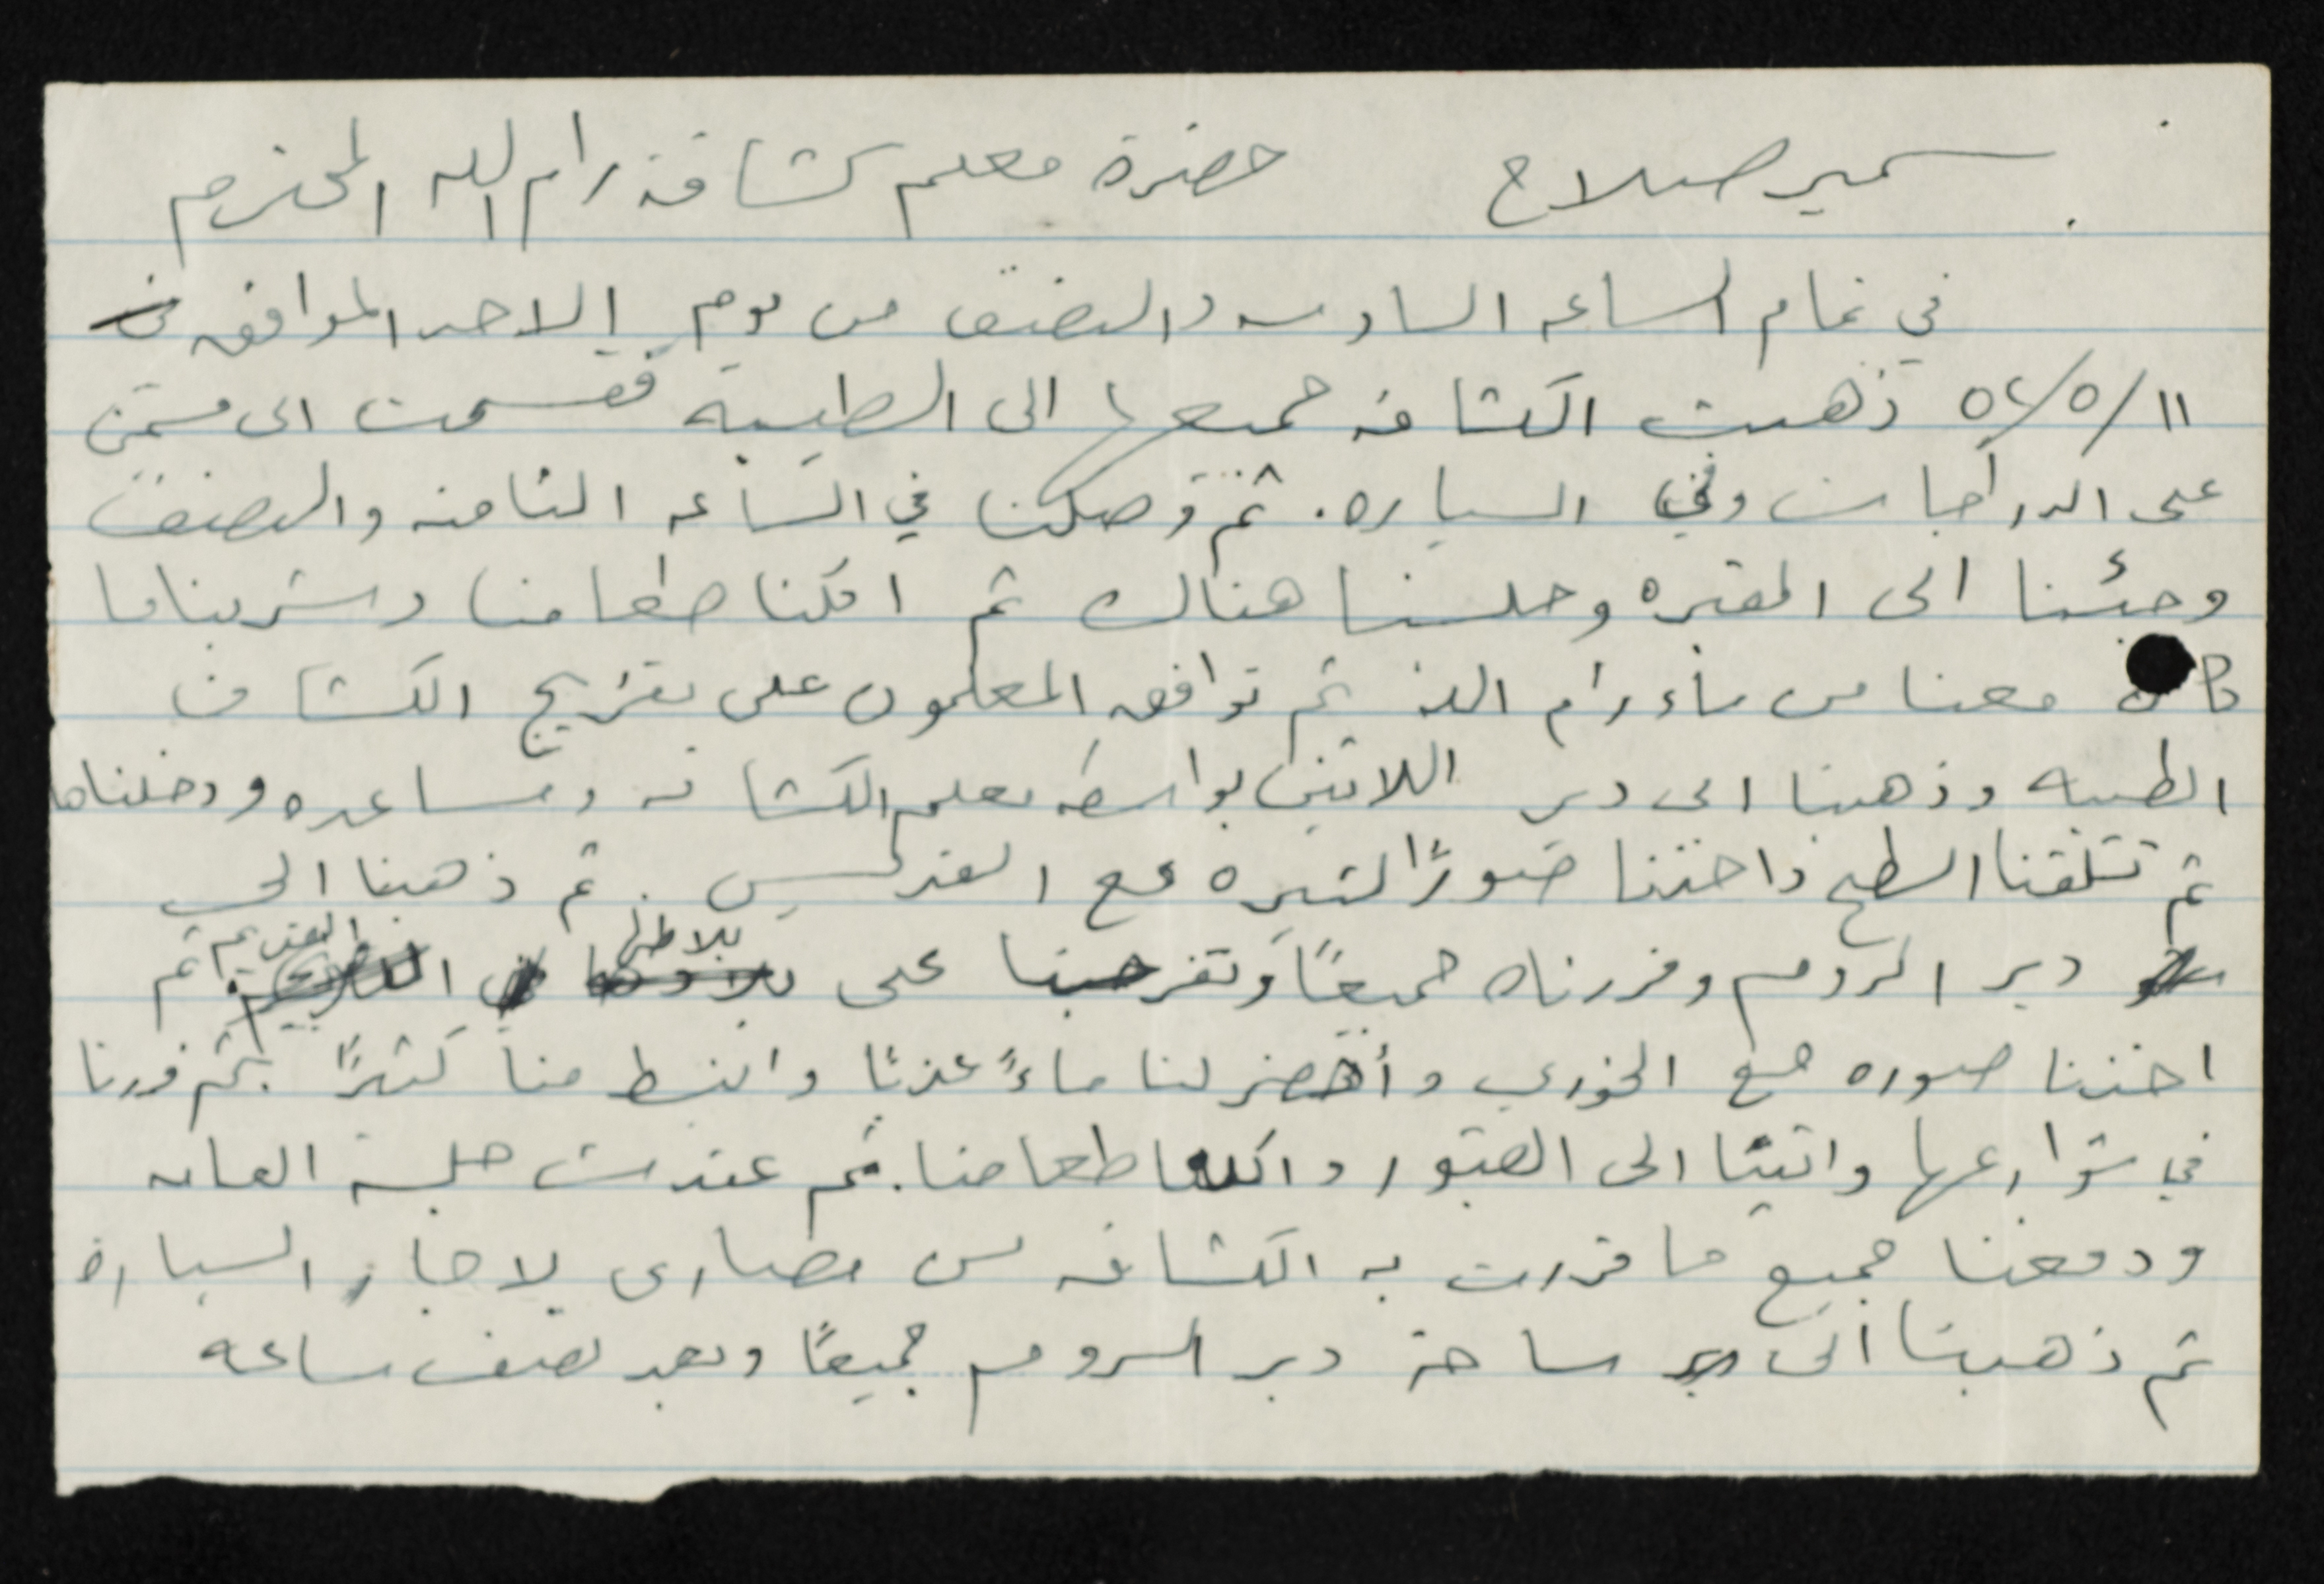 سمير صلاح حضرة معلم كشافة رام الله المحترم
في تمام الساعه السادسه والنصف من يوم الاحد الموافق في
١١/٥/٥٢ ذهبت الكشافه جميعها الى الطيبة فقسمت الى قسمين
على الدراجات وفي السياره. ثم وصلنا في الساعه الثامنه والنصف
وجئنا الى المقبره وجلسنا هناك ثم اكلنا طعامنا وشربنا ما
كان معنا من ماء رام الله ثم توافق المعلمون على تفريج الكشاف
الطيبه وذهبنا الى دير اللاتين بواسطه معلم الكشافه ومساعده ودخلناه
ثم تسلقنا السطح واخذنا صورًا كثيره مع القدليس. ثم ذهبنا الى
دير الروم وزرناه جميعًا وتفرجنا على بلاطها القديم ثم
اخذنا صوره مع الخوري وأحضر لنا ماءً عذبًا وانبسط منا كثيرًا. ثم درنا
في شوارعها واتينا الى القبور واكلنا طعامنا. ثم عقدت جلسة العامه
ودفعنا جميع ما قررت به الكشافه من مصارى لاجار السياره
ثم ذهبنا الى ساحة دير الروم جميعًا وبعد نصف ساعه